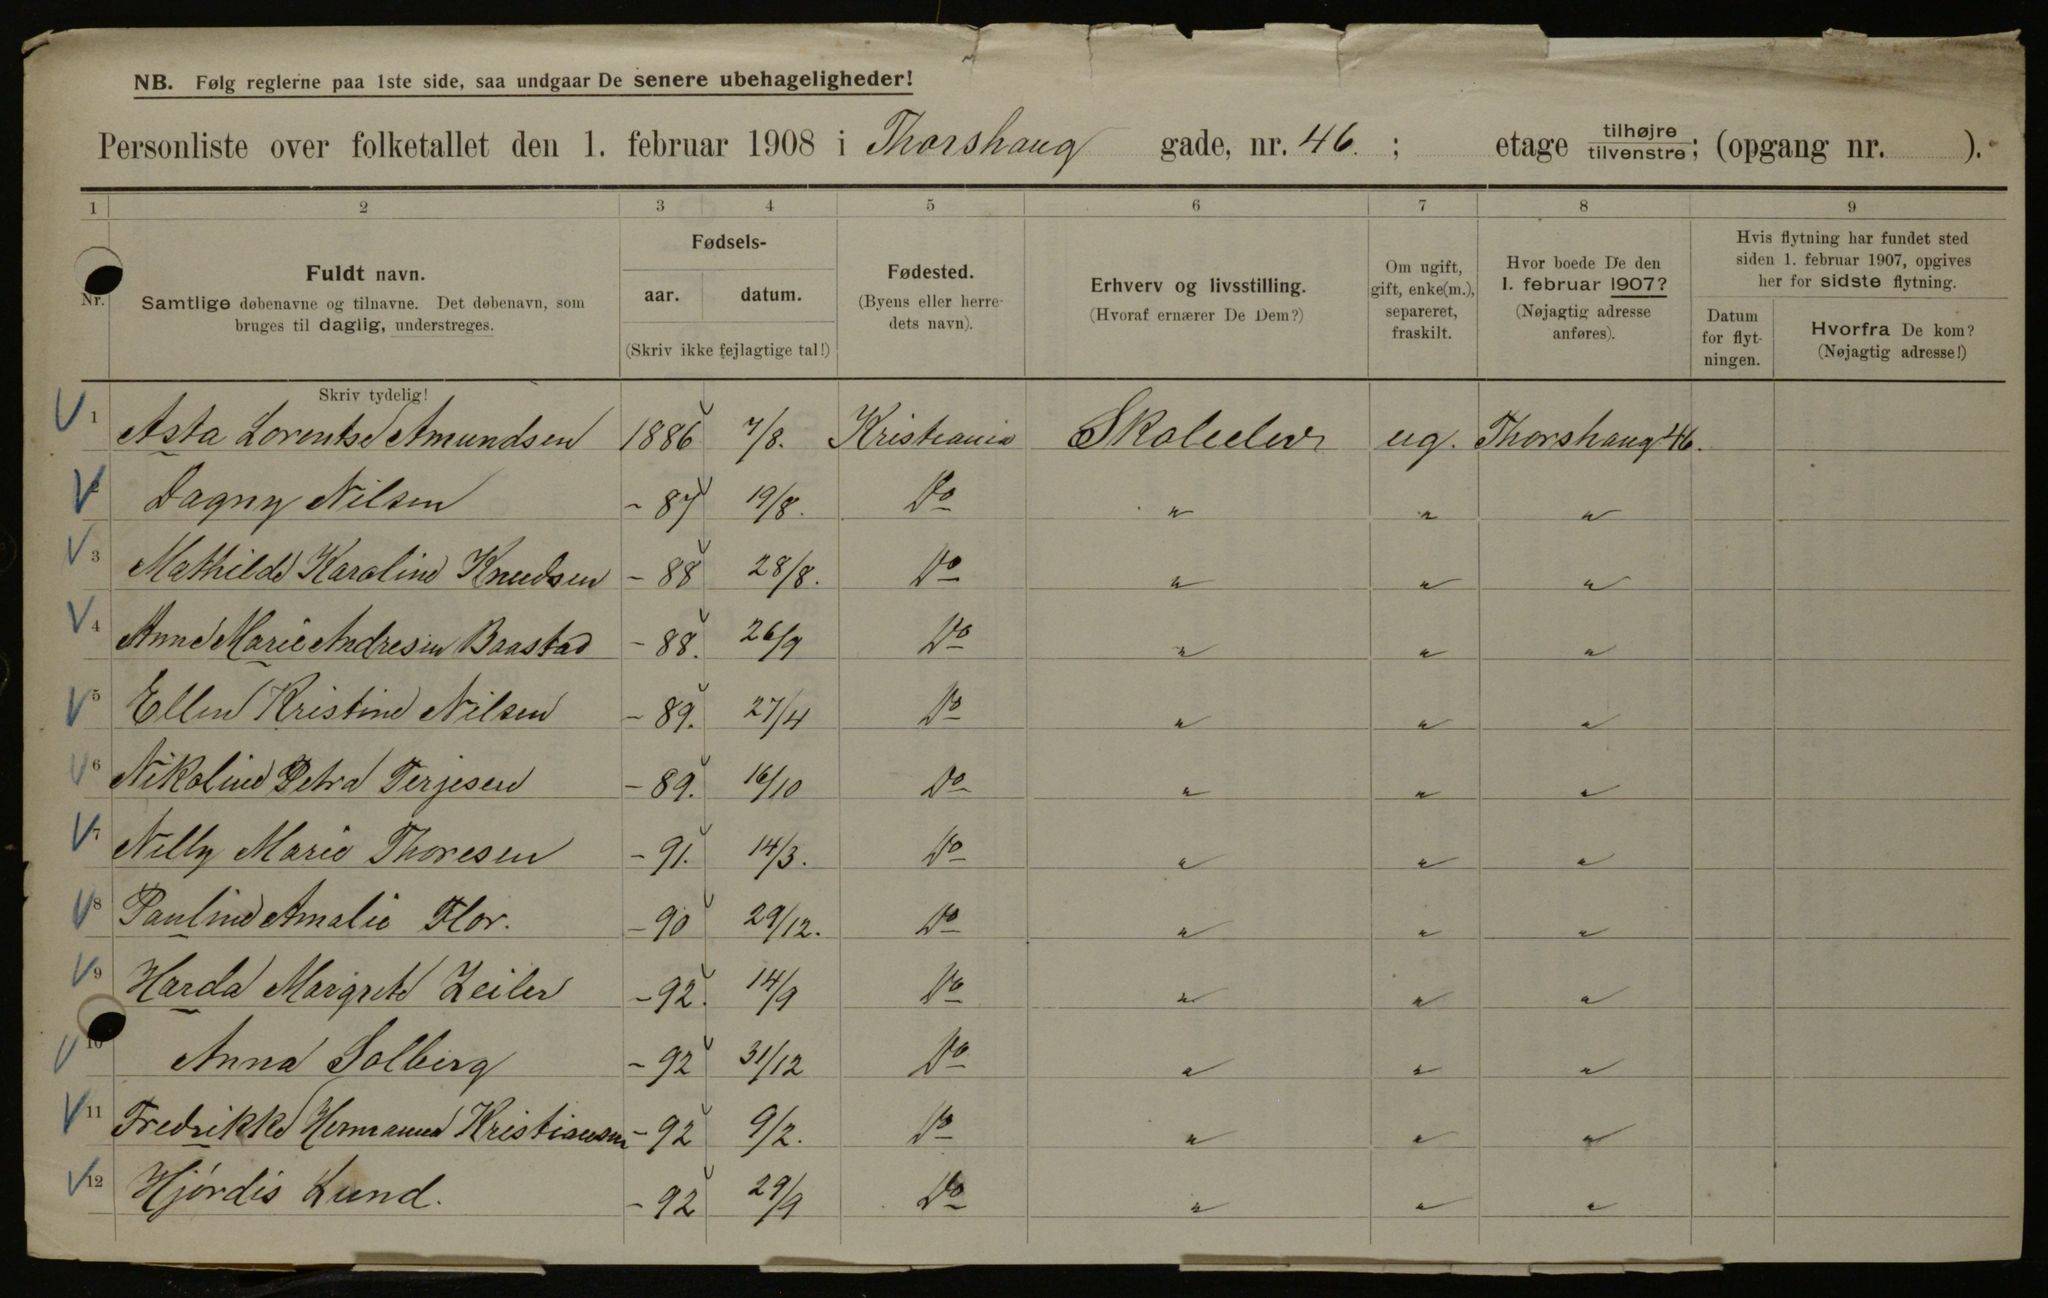 NB. Følg reglerne paa 1ste side, saa undgaar De senere ubehageligheder!
Personliste over folketallet den 1. februar 1908 i Thorshaug gade, nr. 46. ; etage tilhøjre tilvenstre; (opgang nr. ).
1 2 3 4 5 6 7 8 9
Nr.
Fuldt navn.
Samtlige døbenavne og tilnavne. Det døbenavn, som
bruges til daglig, understreges.
Fødsels-
aar. datum.
(Skriv ikke fejlagtige tal!)
Fødested.
(Byens eller herre-
dets navn).
Erhverv og livsstilling.
(Hvoraf ernærer De Dem?)
Om ugift,
gift, enke(m.),
separeret,
fraskilt.
Hvor boede De den
1. februar 1907?
(Nøjagtig adresse
anføres).
Hvis flytning har fundet sted
siden 1. februar 1907, opgives
her for sidste flytning.
Datum
for flyt-
ningen.
Hvorfra De kom?
(Nøjagtig adresse!)
Skriv tydelig!
1 Asta Lorentse Amundsen 1886 7/8. Kristiania Skoleelev ug. Thorshaug 46.
2 Dagny Nilsen - 87 19/8. Do " " "
3 Mathilde Karoline Knudsen - 88 28/8. Do " " "
4 Anne Marie Andresen Baastad - 88. 26/9 Do " " "
5 Ellen Kristine Nilsen - 89. 27/4 Do " " "
6 Nikoline Petra Terjesen - 89. 16/10 Do " " "
7 Nilly Marie Thoresen - 91. 14/3. Do " " "
8 Pauline Amalie Flor. - 90 29/12. Do " " "
9 Harda Margrete Zeiler - 92. 14/9 Do " " "
10 Anna Solberg - 92 31/12 Do " " "
11 Fredrikke Hermanna Kristiansen - 92 9/2. Do " " "
12 Hjórdis Lund. - 92 29/9 Do " " "